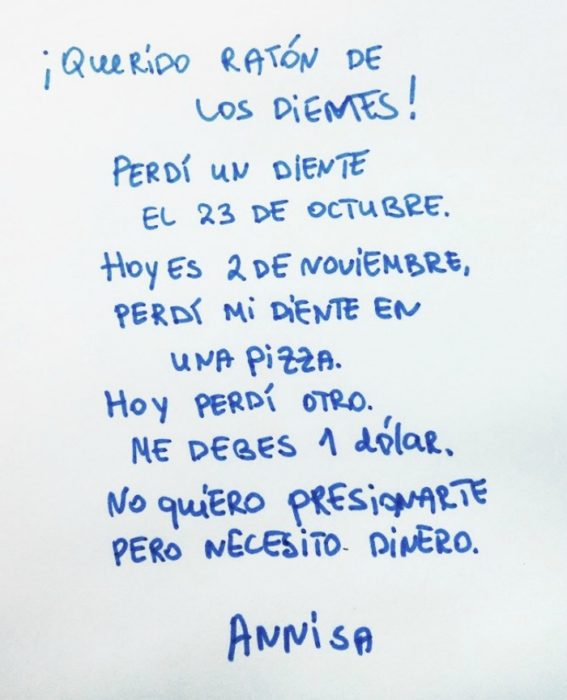 ¡QUERIDO RATÓN DE
LOS DIENTES!
PERDÍ UN DIENTE
EL 23 DE OCTUBRE.
HOY ES 2 DE NOVIEMBRE,
PERDÍ MI DIENTE EN
UNA PIZZA.
HOY PERDÍ OTRO.
ME DEBES 1 dólar.
NO QUIERO PRESIONARTE
PERO NECESITO DINERO.
ANNISA